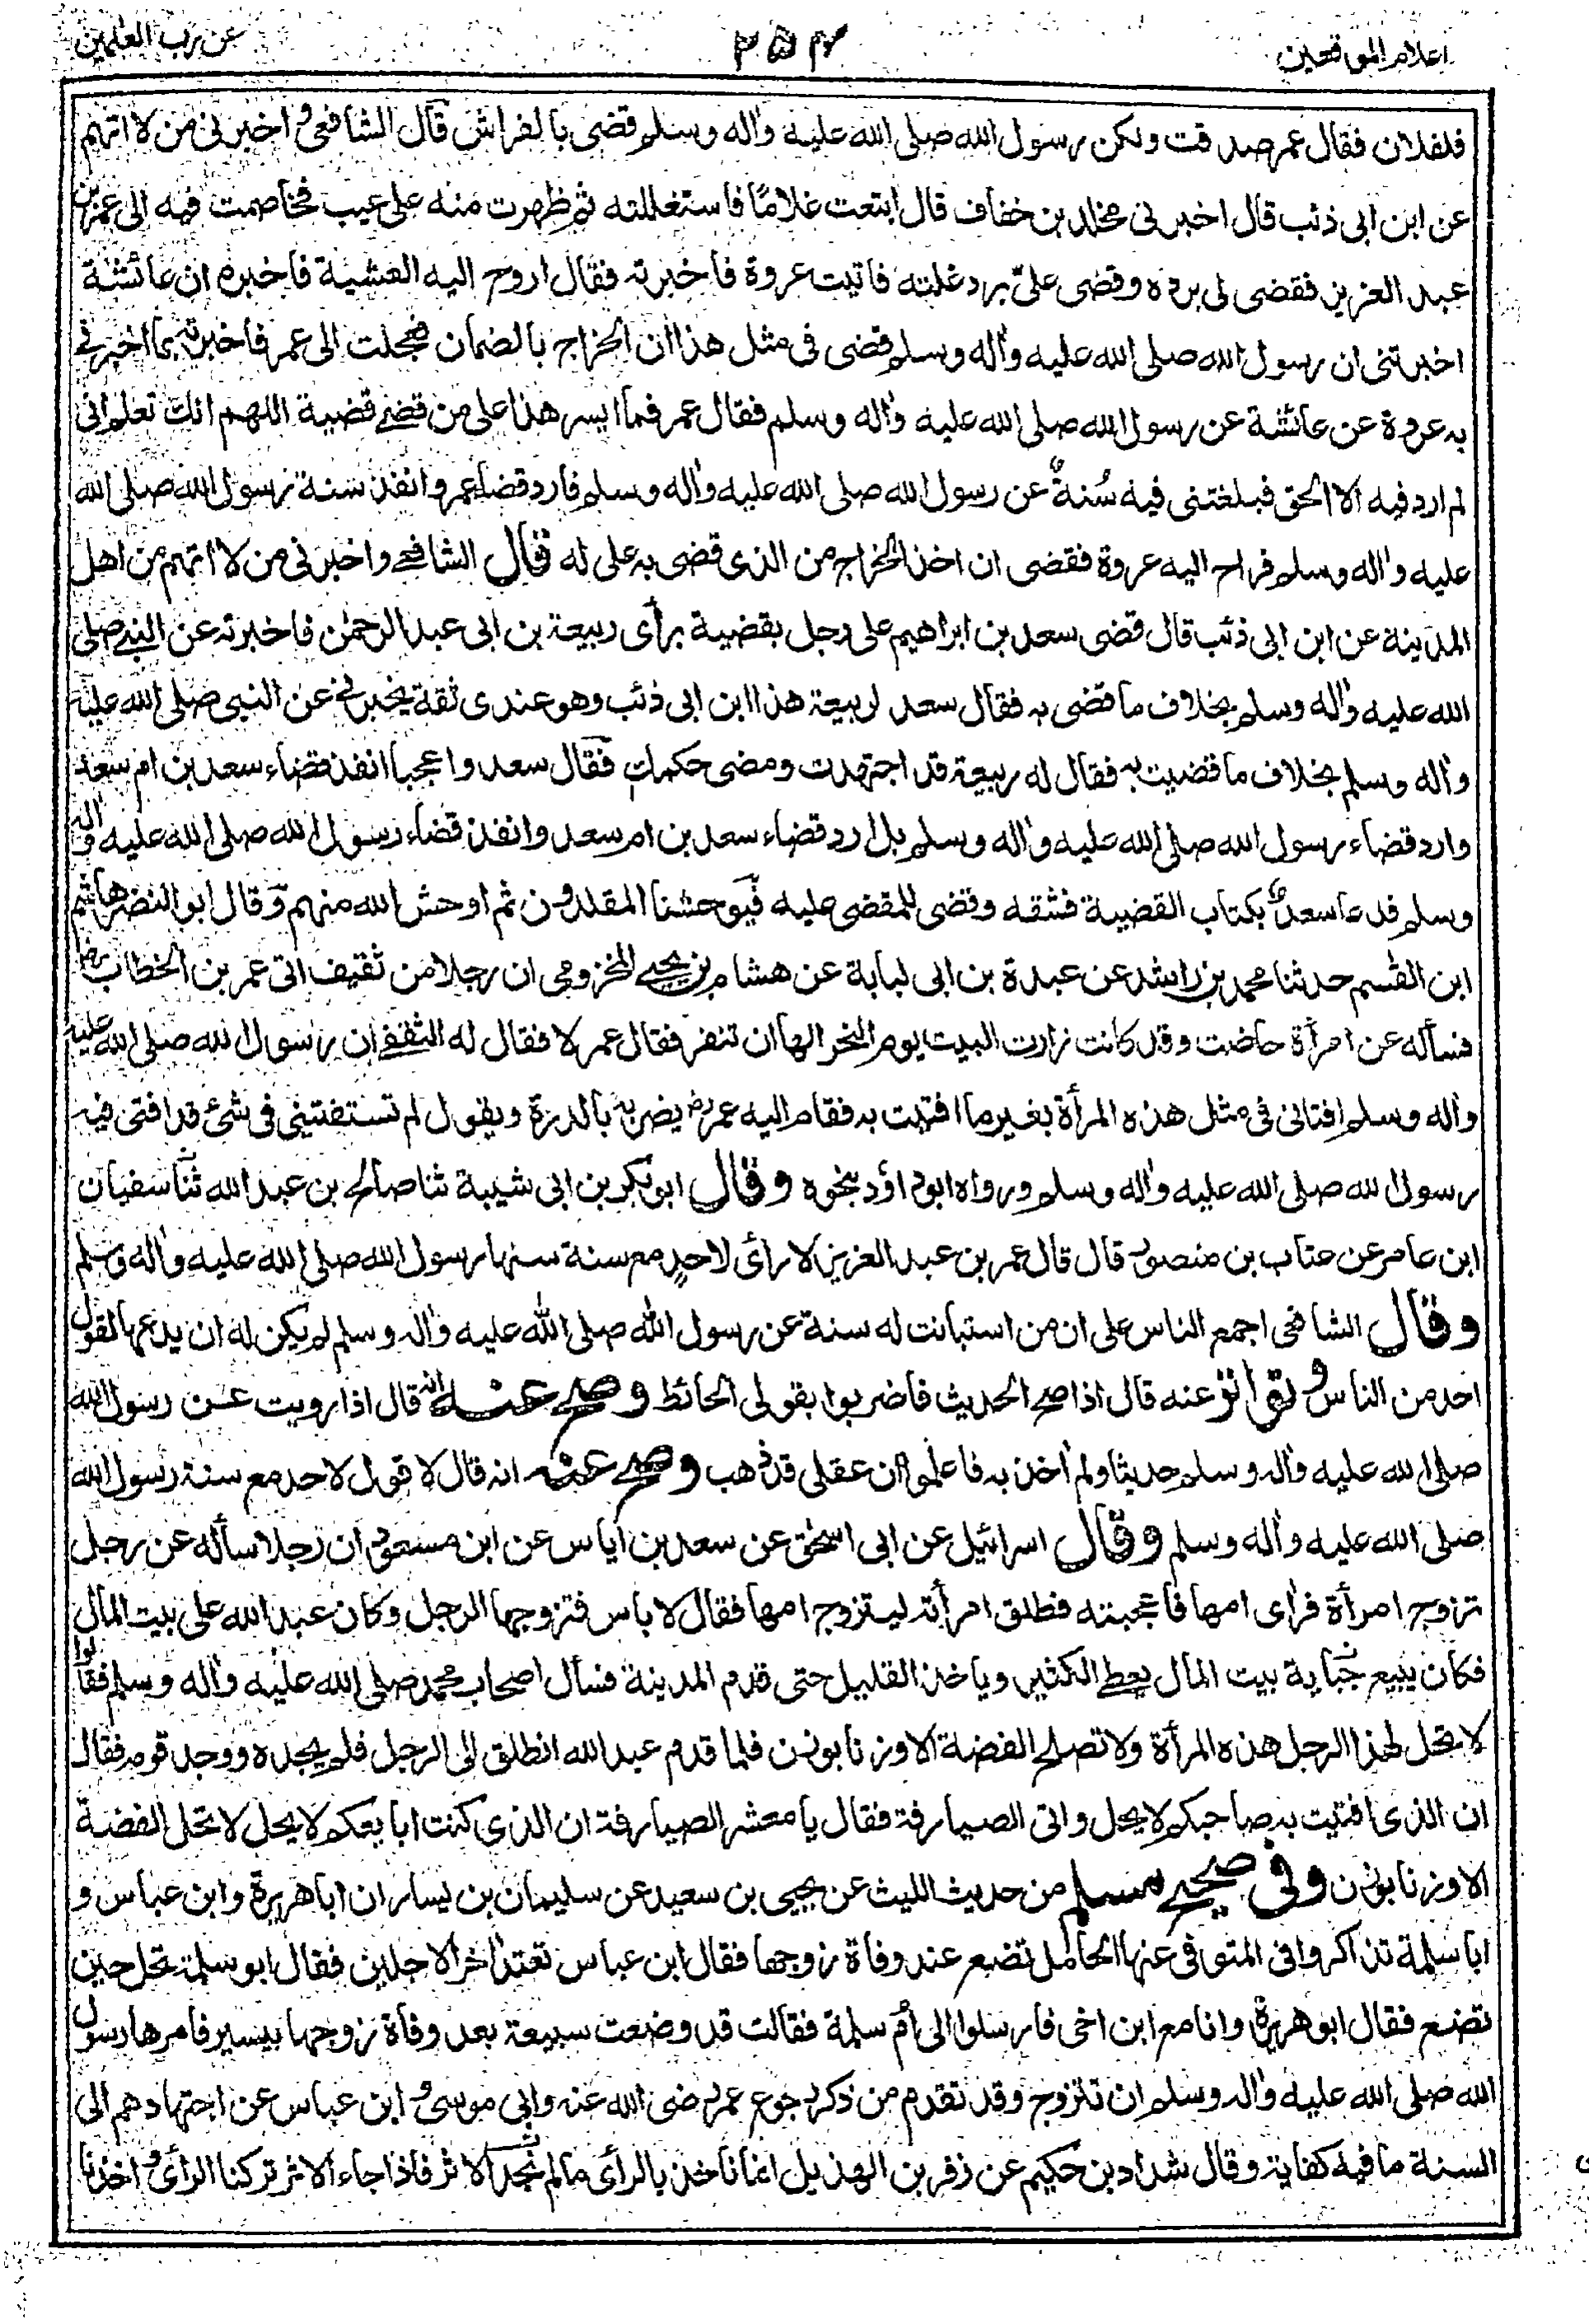 اعلام الموقعين
٣٥٤
عن رب العلمين
فلفلان فقال عمر صدقت ولكن رسول الله صلى الله عليه واٰله وسلم قضى بالفراش قال الشافعى واخبرنى من لا اتهم
عن ابن ابى ذئب قال اخبرنى مخلد بن خفاف قال ابتعت غلامًا فاستغللته ثم ظهرت منه على عيب فخاصمت فيه الى عمر بن
عبد العزيز فقضى لى برده وقضى علىّ برد غلته فاتيت عروة فاخبرته فقال اروح اليه العشية فاخبره ان عائشة
اخبرتنى ان رسول الله صلى الله عليه واٰله وسلم قضى فى مثل هذا ان الخراج بالضمان فعجلت الى عمر فاخبرته بما اخبرنى
به عروة عن عائشة عن رسول الله صلى الله عليه واٰله وسلم فقال عمر فما ايسر هذا على من قضے قضية اللهم انك تعلم انى
لم ارد فيه الا الحق فبلغتنى فيه سُنةٌ عن رسول الله صلى الله عليه واٰله وسلم فارد قضاء عمر وانفذ سنة رسول الله صلى الله
عليه واٰله وسلم فراح اليه عروة فقضى ان اخذ الخراج من الذى قضى به على له قال الشافعے واخبرنى من لا اتهم من اهل
المدينة عن ابن ابى ذئب قال قضى سعد بن ابراهيم على رجل بقضية برأى ربيعة بن ابى عبد الرحمٰن فاخبرته عن النبے صلى
الله عليه واٰله وسلم بخلاف ما قضى به فقال سعد لربيعة هذا ابن ابى ذئب وهو عندى ثقة يخبرنے عن النبى صلى الله عليه
واٰله وسلم بخلاف ما قضيت به فقال له ربيعة قد اجتهدت ومضى حكمك فقال سعد واعجبا انفذ قضاء سعد بن ام سعد
وارد قضاء رسول الله صلى الله عليه واٰله وسلم بل ارد قضاء سعد بن ام سعد وانفذ قضاء رسول الله صلى الله عليه واٰله
وسلم فدعا سعدٌ بكتاب القضية فشقه وقضى للمقضى عليه فيوحشنا المقلدون ثم اوحش الله منهم وقال ابو النضر هاشم
ابن القٰسم حدثنا محمد بن راشد عن عبدة بن ابى لبابة عن هشام بن يحيے المخزومى ان رجلا من ثقيف اتى عمر بن الخطاب رض
فسأله عن امرأة حاضت وقد كانت زارت البيت يوم النحر الها ان تنفر فقال عمر لا فقال له الثقفے ان رسول الله صلى الله عليه
واٰله وسلم افتانى فى مثل هذه المرأة بغير ما افتيت به فقام اليه عمر رض يضربه بالدرة ويقول لم تستفتينى فى شئ قد افتى فيه
رسول الله صلى الله عليه واٰله وسلم ورواه ابو داؤد بنحوه وقال ابو بكر بن ابى شيبة ثنا صالح بن عبد الله ثنا سفيان
ابن عامر عن عتاب بن منصور قال قال عمر بن عبد العزيز لا رأى لاحدٍ مع سنة سنها رسول الله صلى الله عليه واٰله وسلم
وقال الشافعى اجمع الناس على ان من استبانت له سنة عن رسول الله صلى الله عليه واٰله وسلم لم يكن له ان يدعها لقول
احد من الناس وتواتر عنه قال اذا صح الحديث فاضربوا بقولى الحائط وصح عنه انه قال اذا رويت عن رسول الله
صلى الله عليه واٰله وسلم حديثا ولم اٰخذ به فاعلموا ان عقلى قد ذهب وصح عنه انه قال لا قول لاحد مع سنة رسول الله
صلى الله عليه واٰله وسلم وقال اسرائيل عن ابى اسحٰق عن سعد بن اياس عن ابن مسعود ان رجلا سأله عن رجل
تزوج امرأة فرأى امها فاعجبته فطلق امرأته ليتزوج امها فقال لا باس فتزوجها الرجل وكان عبد الله على بيت المال
فكان يبيع نفاية بيت المال يعطے الكثير وياخذ القليل حتى قدم المدينة فسأل اصحاب محمد صلى الله عليه واٰله وسلم فقالوا
لا تحل لهذا الرجل هذه المرأة ولا تصلح الفضة الا وزنا بوزن فلما قدم عبد الله انطلق الى الرجل فلم يجده ووجد قومه فقال
ان الذى افتيت به صاحبكم لا يحل واتى الصيارفة فقال يا معشر الصيارفة ان الذى كنت ابايعكم لا يحل لا تحل الفضة
الا وزنا بوزن وفى صحيح مسلم من حديث الليث عن يحيى بن سعيد عن سليمان بن يسار ان ابا هريرة وابن عباس و
ابا سلمة تذاكروا فى المتوفى عنها الحامل تضع عند وفاة زوجها فقال ابن عباس تعتد اٰخر الاجلين فقال ابو سلمة تحل حين
تضع فقال ابو هريرة وانا مع ابن اخى فارسلوا الى اُم سلمة فقالت قد وضعت سبيعة بعد وفاة زوجها بيسير فامرها رسول
الله صلى الله عليه واٰله وسلم ان تتزوج وقد تقدم من ذكر رجوع عمر رضى الله عنه وابى موسىٰ وابن عباس عن اجتهادهم الى
السنة ما فيه كفاية وقال شداد بن حكيم عن زفر بن الهذيل انما ناخذ بالرأى ما لم نجد الاثر فاذا جاء الاثر تركنا الرأى واخذنا